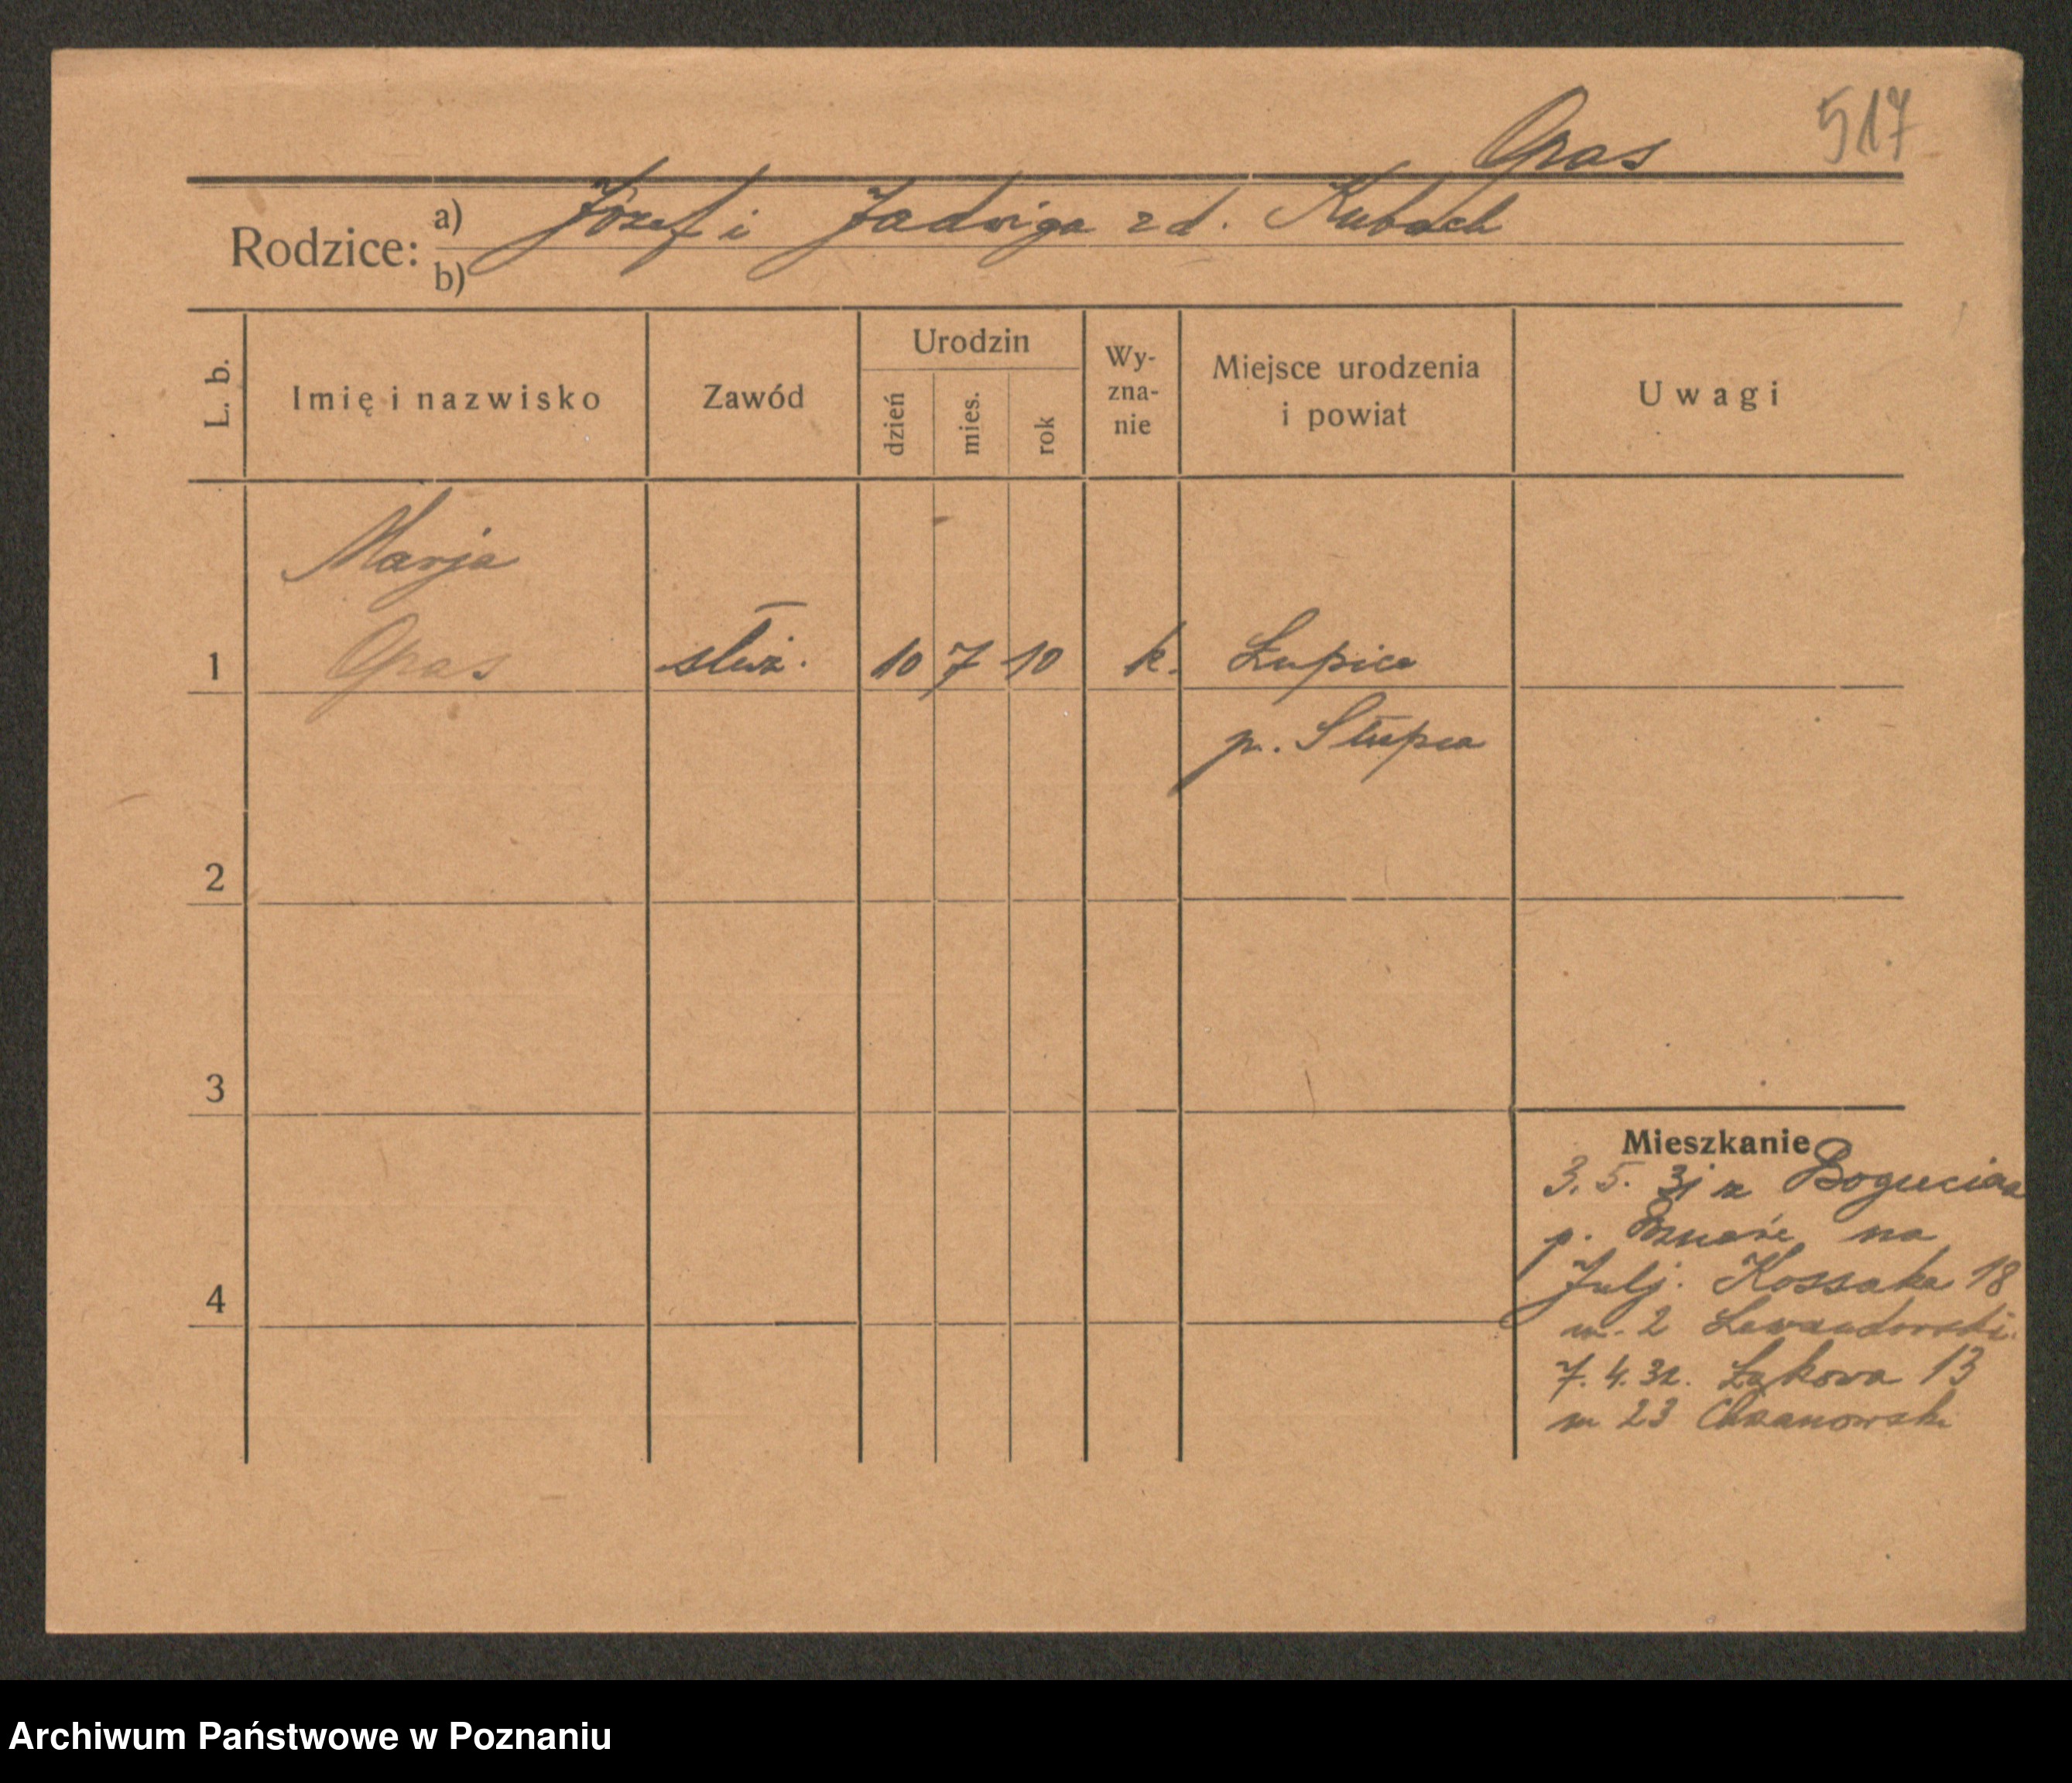 517
Opas
Rodzice: a) Józef i Jadwiga z d. Kubach
b)
L. b. Imię i nazwisko Zawód Urodzin dzień mies. rok Wy-zna-nie Miejsce urodzenia i powiat Uwagi
Marja
1 Opas służ. 10 7 10 k. Łupice
p. Słupca
2
3
Mieszkanie
3. 5. 31 z
p. na
4 Julj. Kossaka 18
m. 2 Lewandowski.
7. 4. 32. Łąkowa 13
m 23 Chrzanowski
Archiwum Państwowe w Poznaniu